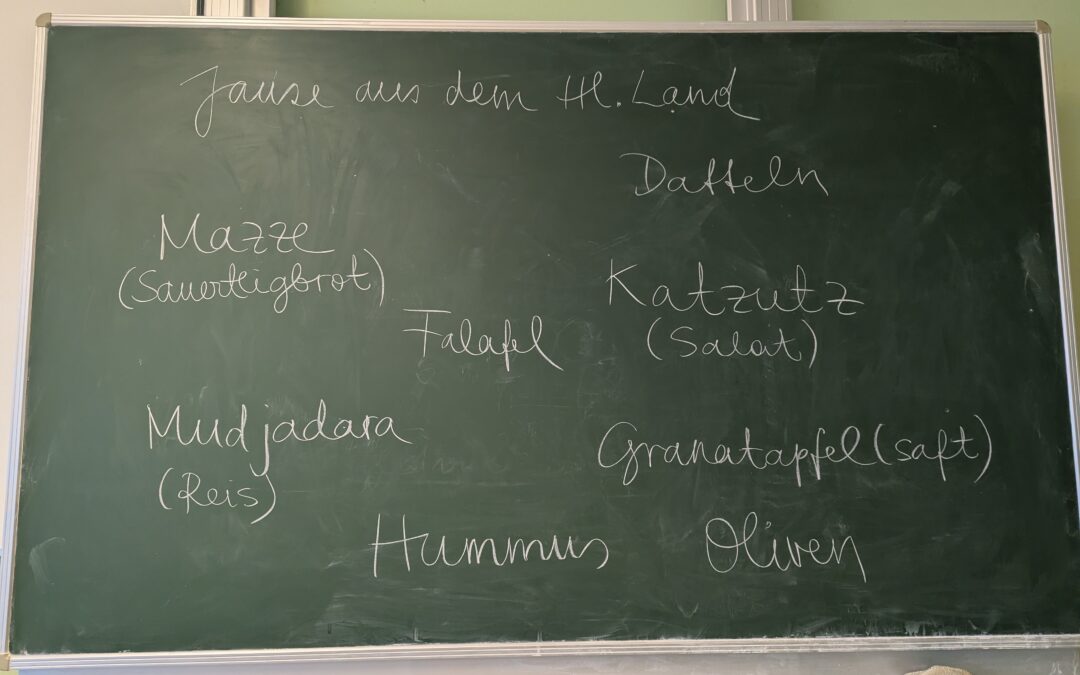 Jause aus dem Hl. Land
Datteln
Mazze
(Sauerteigbrot)
Katzutz
(Salat)
Falafel
Mudjadara
(Reis)
Granatapfel (saft)
Hummus
Oliven